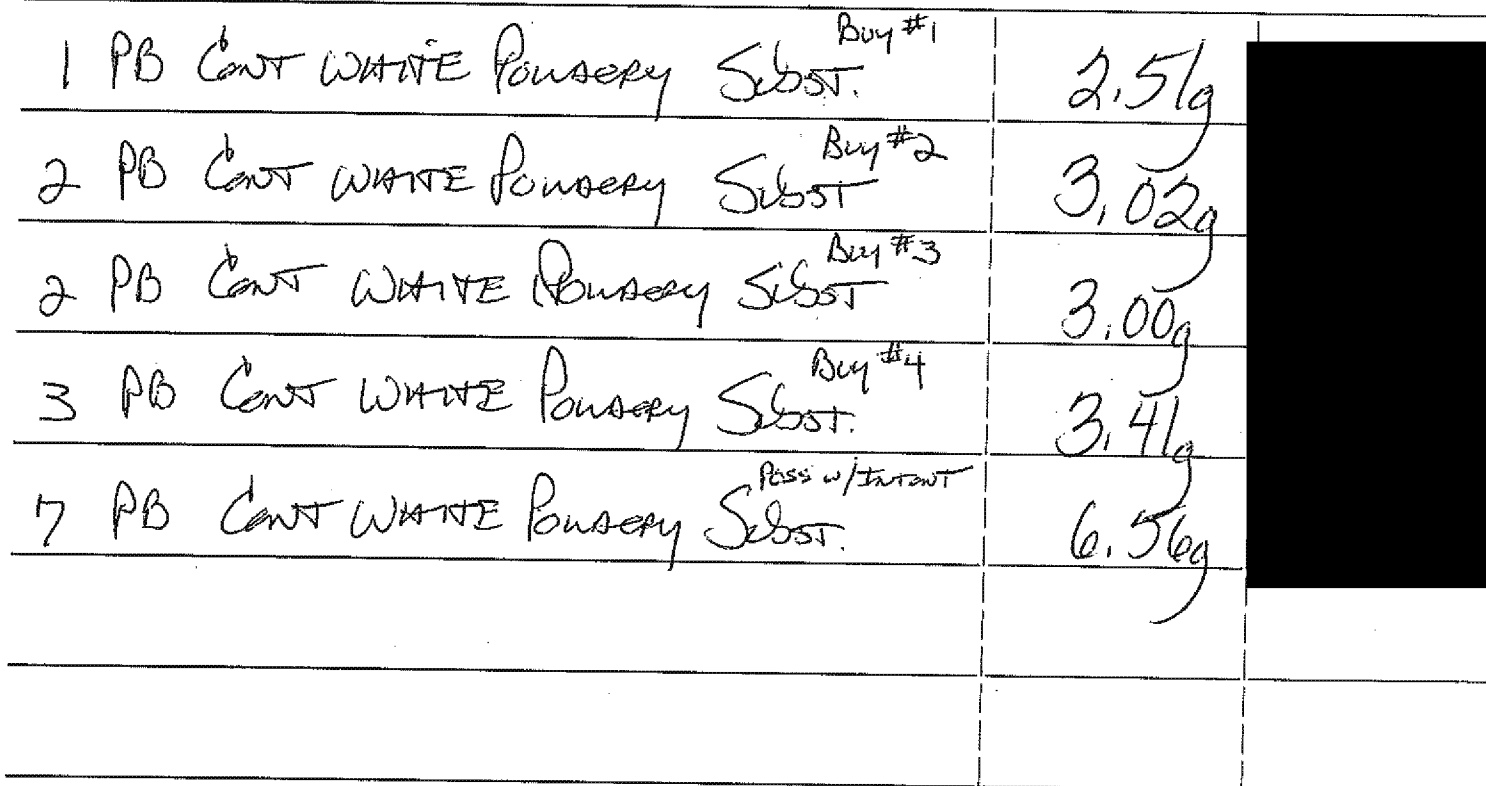 1 PB CONT WHITE POWDERY SUBST. Buy #1 2.51g
2 PB CONT WHITE POWDERY SUBST Buy #2 3.02g
2 PB CONT WHITE POWDERY SUBST Buy #3 3.00g
3 PB CONT WHITE POWDERY SUBST. Buy #4 3.41g
7 PB CONT WHITE POWDERY SUBST. POSS W/INTENT 6.56g